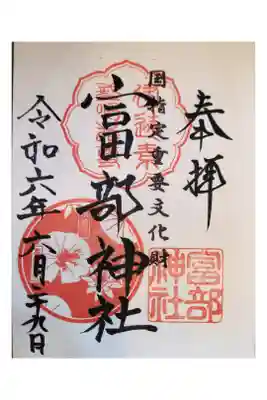 奉拝
国指定重要文化財
富部神社
令和六年六月二九日
富部
神社